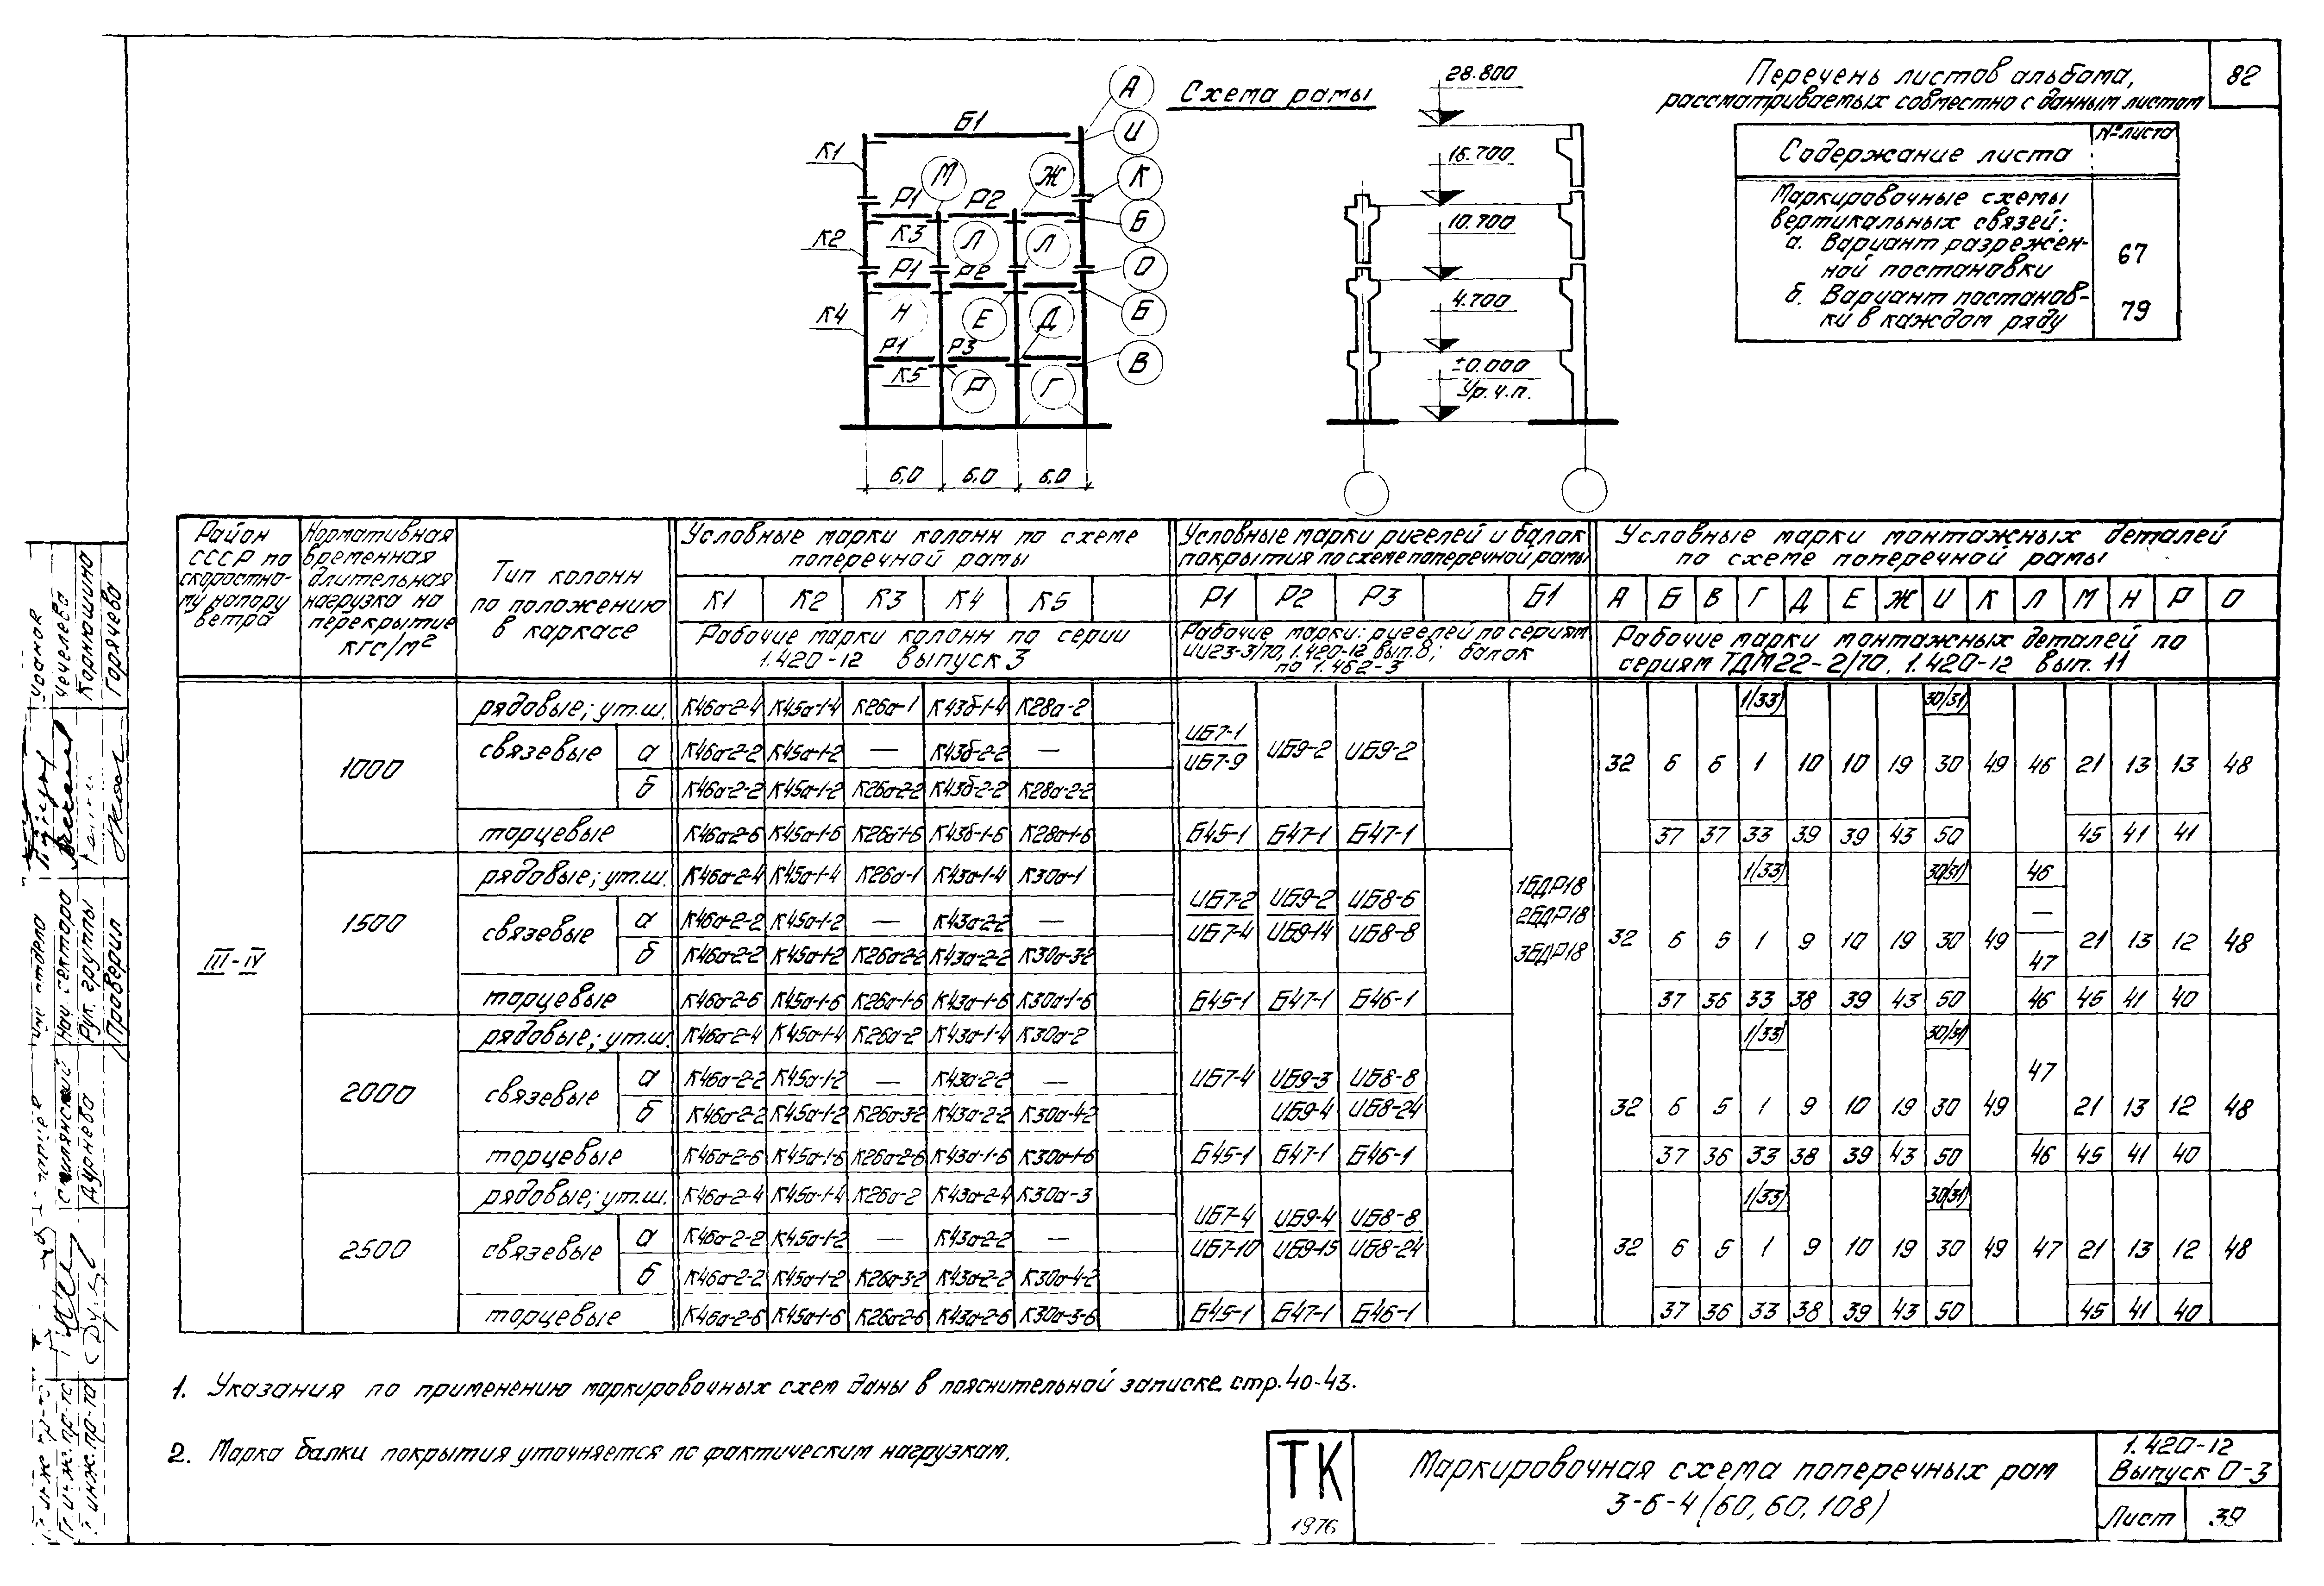 82
Схема рамы
Перечень листов альбома,
рассматриваемых совместно с данным листом
Содержание листа
№ листа
Маркировочные схемы
вертикальных связей:
а. Вариант разрежен-
ной постановки
67
б. Вариант постанов-
ки в каждом ряду
79
А
Б1
И
К1
М
Ж
К
Р1
Р2
Б
К2
К3
Л
Л
О
Р1
Р2
Б
Н
Е
Д
К4
Р1
Р3
В
К5
Р
Г
6,0 6,0 6,0
28.800
16.700
10.700
4.700
±0.000
Ур.ч.п.
Район СССР по скоростно-му напору ветра
Нормативная временная длительная нагрузка на перекрытие кгс/м²
Тип колонн по положению в каркасе
Условные марки колонн по схеме поперечной рамы
К1 К2 К3 К4 К5
Рабочие марки колонн по серии 1.420-12 выпуск 3
Условные марки ригелей и балок покрытия по схеме поперечной рамы
Р1 Р2 Р3 Б1
Рабочие марки: ригелей по сериям ИИ23-3/70, 1.420-12 вып.8; балок по 1.462-3
Условные марки монтажных деталей по схеме поперечной рамы
А Б В Г Д Е Ж И К Л М Н Р О
Рабочие марки монтажных деталей по сериям ТДМ22-2/70, 1.420-12 вып. 11
III-IV
1БДР18
2БДР18
3БДР18
1000
рядовые; ут.ш. К46а-2-4 К45а-1-4 К26а-1 К43б-1-4 К28а-2 1(33) 30(31)
связевые а К46а-2-2 К45а-1-2 — К43б-2-2 —
б К46а-2-2 К45а-1-2 К26а-2-2 К43б-2-2 К28а-2-2
ИБ7-1 ИБ7-9 ИБ9-2 ИБ9-2
32 6 6 1 10 10 19 30 49 46 21 13 13 48
торцевые К46а-2-6 К45а-1-6 К26а-1-6 К43б-1-6 К28а-1-6 Б45-1 Б47-1 Б47-1 37 37 33 39 39 43 50 45 41 41
1500
рядовые; ут.ш. К46а-2-4 К45а-1-4 К26а-1 К43а-1-4 К30а-1 1(33) 30(31) 46
связевые а К46а-2-2 К45а-1-2 — К43а-2-2 — —
б К46а-2-2 К45а-1-2 К26а-2-2 К43а-2-2 К30а-3-2 47
ИБ7-2 ИБ9-2 ИБ8-6
ИБ7-4 ИБ9-14 ИБ8-8
32 6 5 1 9 10 19 30 49 21 13 12 48
торцевые К46а-2-6 К45а-1-6 К26а-1-6 К43а-1-6 К30а-1-6 Б45-1 Б47-1 Б46-1 37 36 33 38 39 43 50 46 45 41 40
2000
рядовые; ут.ш. К46а-2-4 К45а-1-4 К26а-2 К43а-1-4 К30а-2 1(33) 30(31)
связевые а К46а-2-2 К45а-1-2 — К43а-2-2 — 47
б К46а-2-2 К45а-1-2 К26а-3-2 К43а-2-2 К30а-4-2
ИБ7-4 ИБ9-3 ИБ8-8
ИБ9-4 ИБ8-24
32 6 5 1 9 10 19 30 49 21 13 12 48
торцевые К46а-2-6 К45а-1-6 К26а-2-6 К43а-1-6 К30а-1-6 Б45-1 Б47-1 Б46-1 37 36 33 38 39 43 50 46 45 41 40
2500
рядовые; ут.ш. К46а-2-4 К45а-1-4 К26а-2 К43а-2-4 К30а-3 1(33) 30(31)
связевые а К46а-2-2 К45а-1-2 — К43а-2-2 —
б К46а-2-2 К45а-1-2 К26а-3-2 К43а-2-2 К30а-4-2
ИБ7-4 ИБ9-4 ИБ8-8
ИБ7-10 ИБ9-15 ИБ8-24
32 6 5 1 9 10 19 30 49 47 21 13 12 48
торцевые К46а-2-6 К45а-1-6 К26а-2-6 К43а-2-6 К30а-3-6 Б45-1 Б47-1 Б46-1 37 36 33 38 39 43 50 45 41 40
1. Указания по применению маркировочных схем даны в пояснительной записке стр. 40-43.
2. Марка балки покрытия уточняется по фактическим нагрузкам.
ТК
1976
Маркировочная схема поперечных рам
3-6-4 (60, 60, 108)
1.420-12
Выпуск 0-3
Лист 39
Нач. сектора
Рук. группы
Проверил
Чечелева
Корнюшина
Горячева
Дурнева